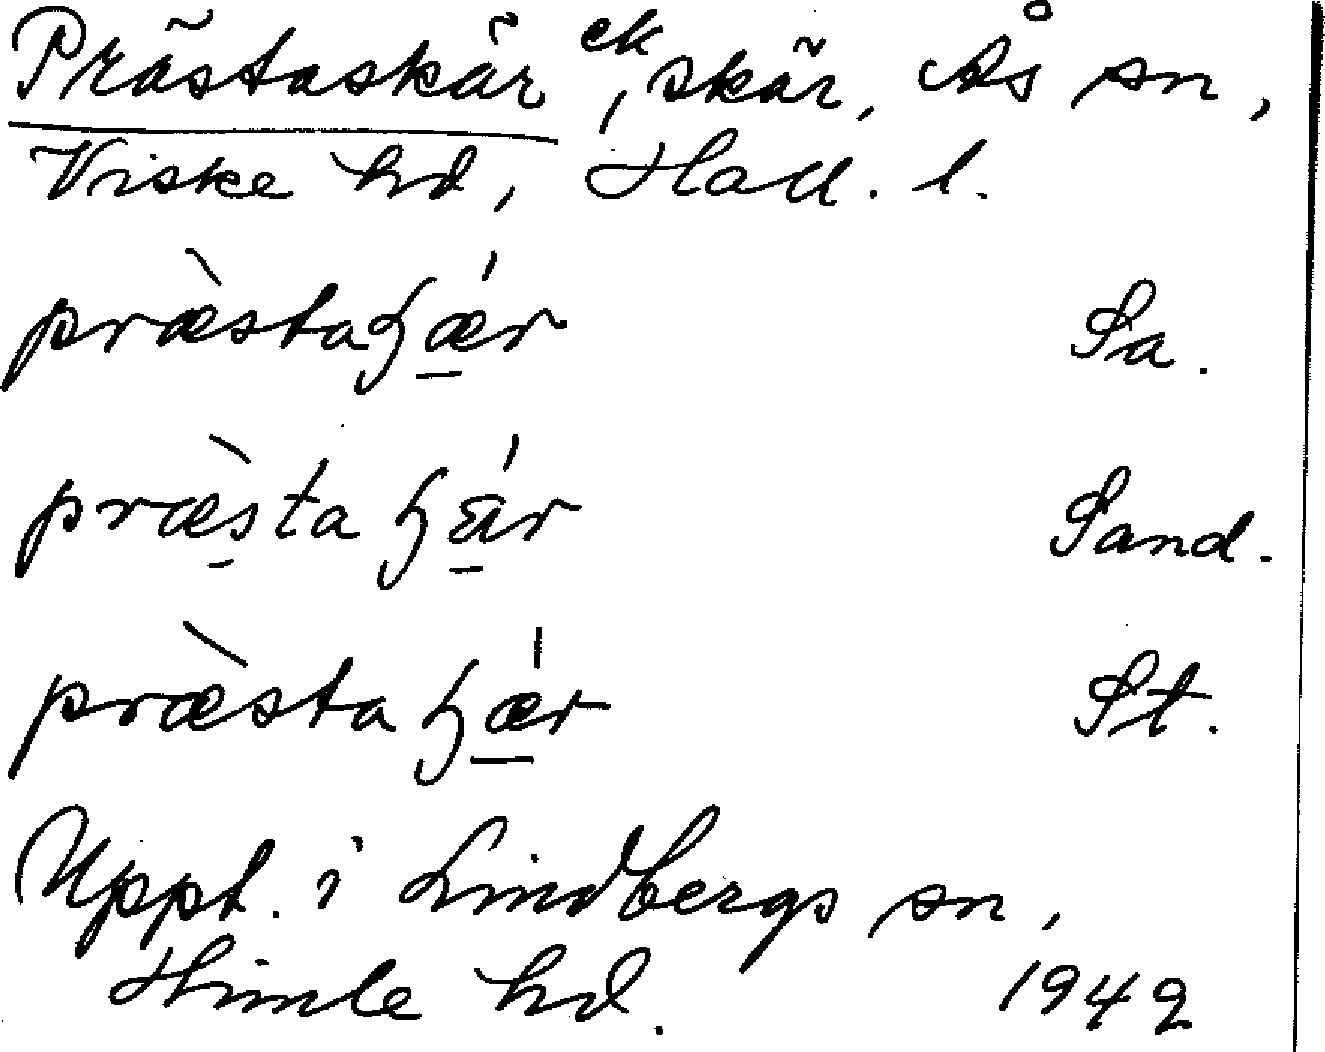 Prästaskär ek, skär, Ås sn,
Viske hd, Hall. l.
præ̀staɧǽr Sa.
præ̀sta ɧǽr Sand.
præ̀sta ɧǽr St.
Uppt. i Lindbergs sn,
Himle hd. 1942